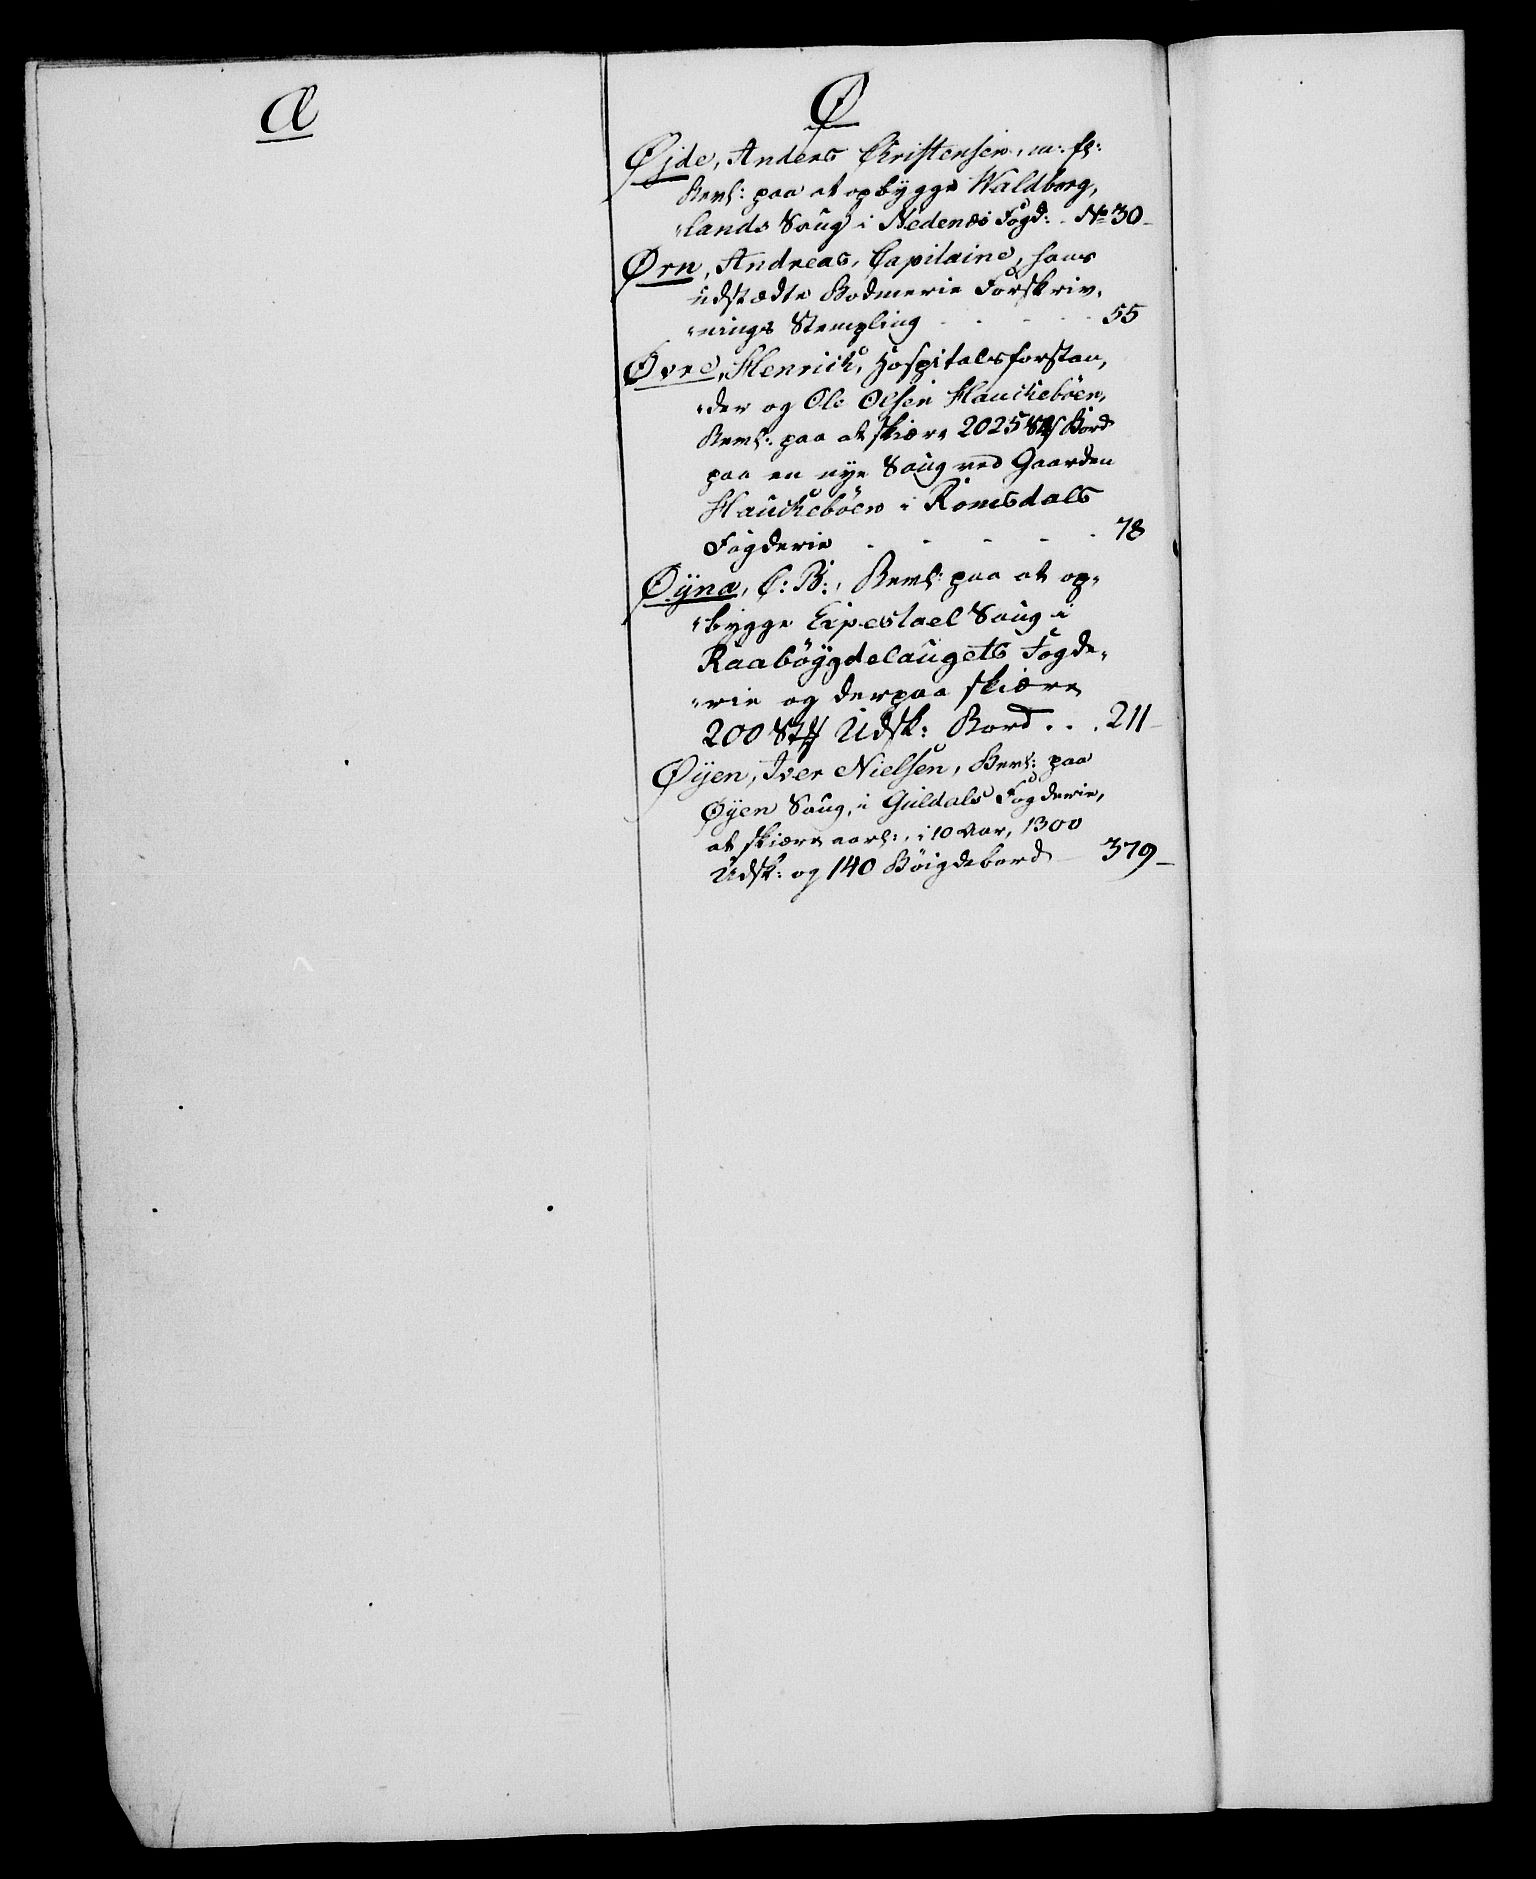 Æ
Ø
Øjde, Anders Christensen, m: fl:
Bevl: paa at opbygge Waldborg,
„lands Saug i Nedenæs Fogd: . No 30-
Ørn, Andreas, Capitaine, hans
udstædte Bodmerie Forskriv,
„nings Stempling - - - - 55
Øvre, Henrich, Hospitalsforstan,
„der og Ole Olsen Hauckebøen,
Bevl: paa at skiære 2025 Stk Bord
paa en nye Saug ved Gaarden
Hauckebøen i Romsdals
Fogderie - - - - - 78
Øyna, C: B:, Bevl: paa at op,
„bygge Expestael Saug i
Raabøygdelaugets Fogde,
„rie og derpaa skiære
200 Stk Udsk: Bord . . . 211-
Øyen, Iver Nielsen, Bevl: paa
Øyen Saug, i Guldals Fogderie,
at skiære aarl:, i 10 Aar, 1300
Udsk: og 140 Bøigdebord - 379-